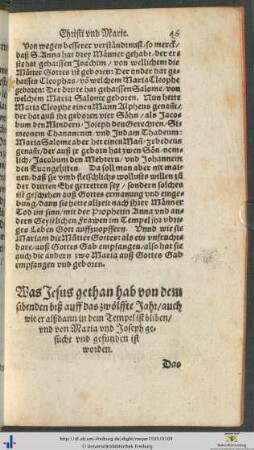 Christi vnd Marie. 46
Von wegen besserer verständtnust, so merck/
daß S. Anna hat drey Männer gehabt, der ers
te hat geheissen Joachim, von wellichem die
Mütter Gottes ist geboren: Der ander hat ge
haissen Cleophas, võ welchem Maria Cleophe
geboren: Der dritte hat gehaissen Salome, von
welchem Maria Salome geboren. Nun hette
Maria Cleophe einen Mann Alpheus genañt,
der hat auß jhr geborn vier Söhn, als Jaco-
bum den Mindern, Joseph den Gerechten, Si-
meonem Chananeum, vnd Judam Thadeum:
Maria Salome aber het einen Mañ Zebedeus
genañt, der auß jr geborn hat zwen Söñ, nem-
lich, Jacobum den Mehrern, vnd Johannem
den Euangelisten. Da soll man aber nit mai-
nen, daß sie vmb fleischlichs wollusts willen zů
der dritten Ehe getretten sey, sondern solches
ist geschehen auß Gottes ermanung vnd einge-
bung, dann sie hette allzeit nach jhrer Männer
Tod im sinn, mit der Prophetin Anna vnd an-
dern Geystlichen Frawen im Tempel jhr vbri-
ges Leben Gott auffzuopffern. Vnnd wie sie
Mariam die Můtter Gottes als ein vnfrucht-
bare, auß Gottes Gab empfangen, also hat sie
auch die andern zwo Maria auß Gottes Gab
empfangen vnd geboren.
Was Jesus gethan hab von dem
sibenden biß auff das zwölffte Jahr, auch
wie er alßdann in dem Tempel ist bliben,
vnd von Maria vnd Joseph ge-
sůcht vnd gefunden ist
worden.
Das
http://dl.ub.uni-freiburg.de/diglit/meyer1581/0109
© Universitätsbibliothek Freiburg